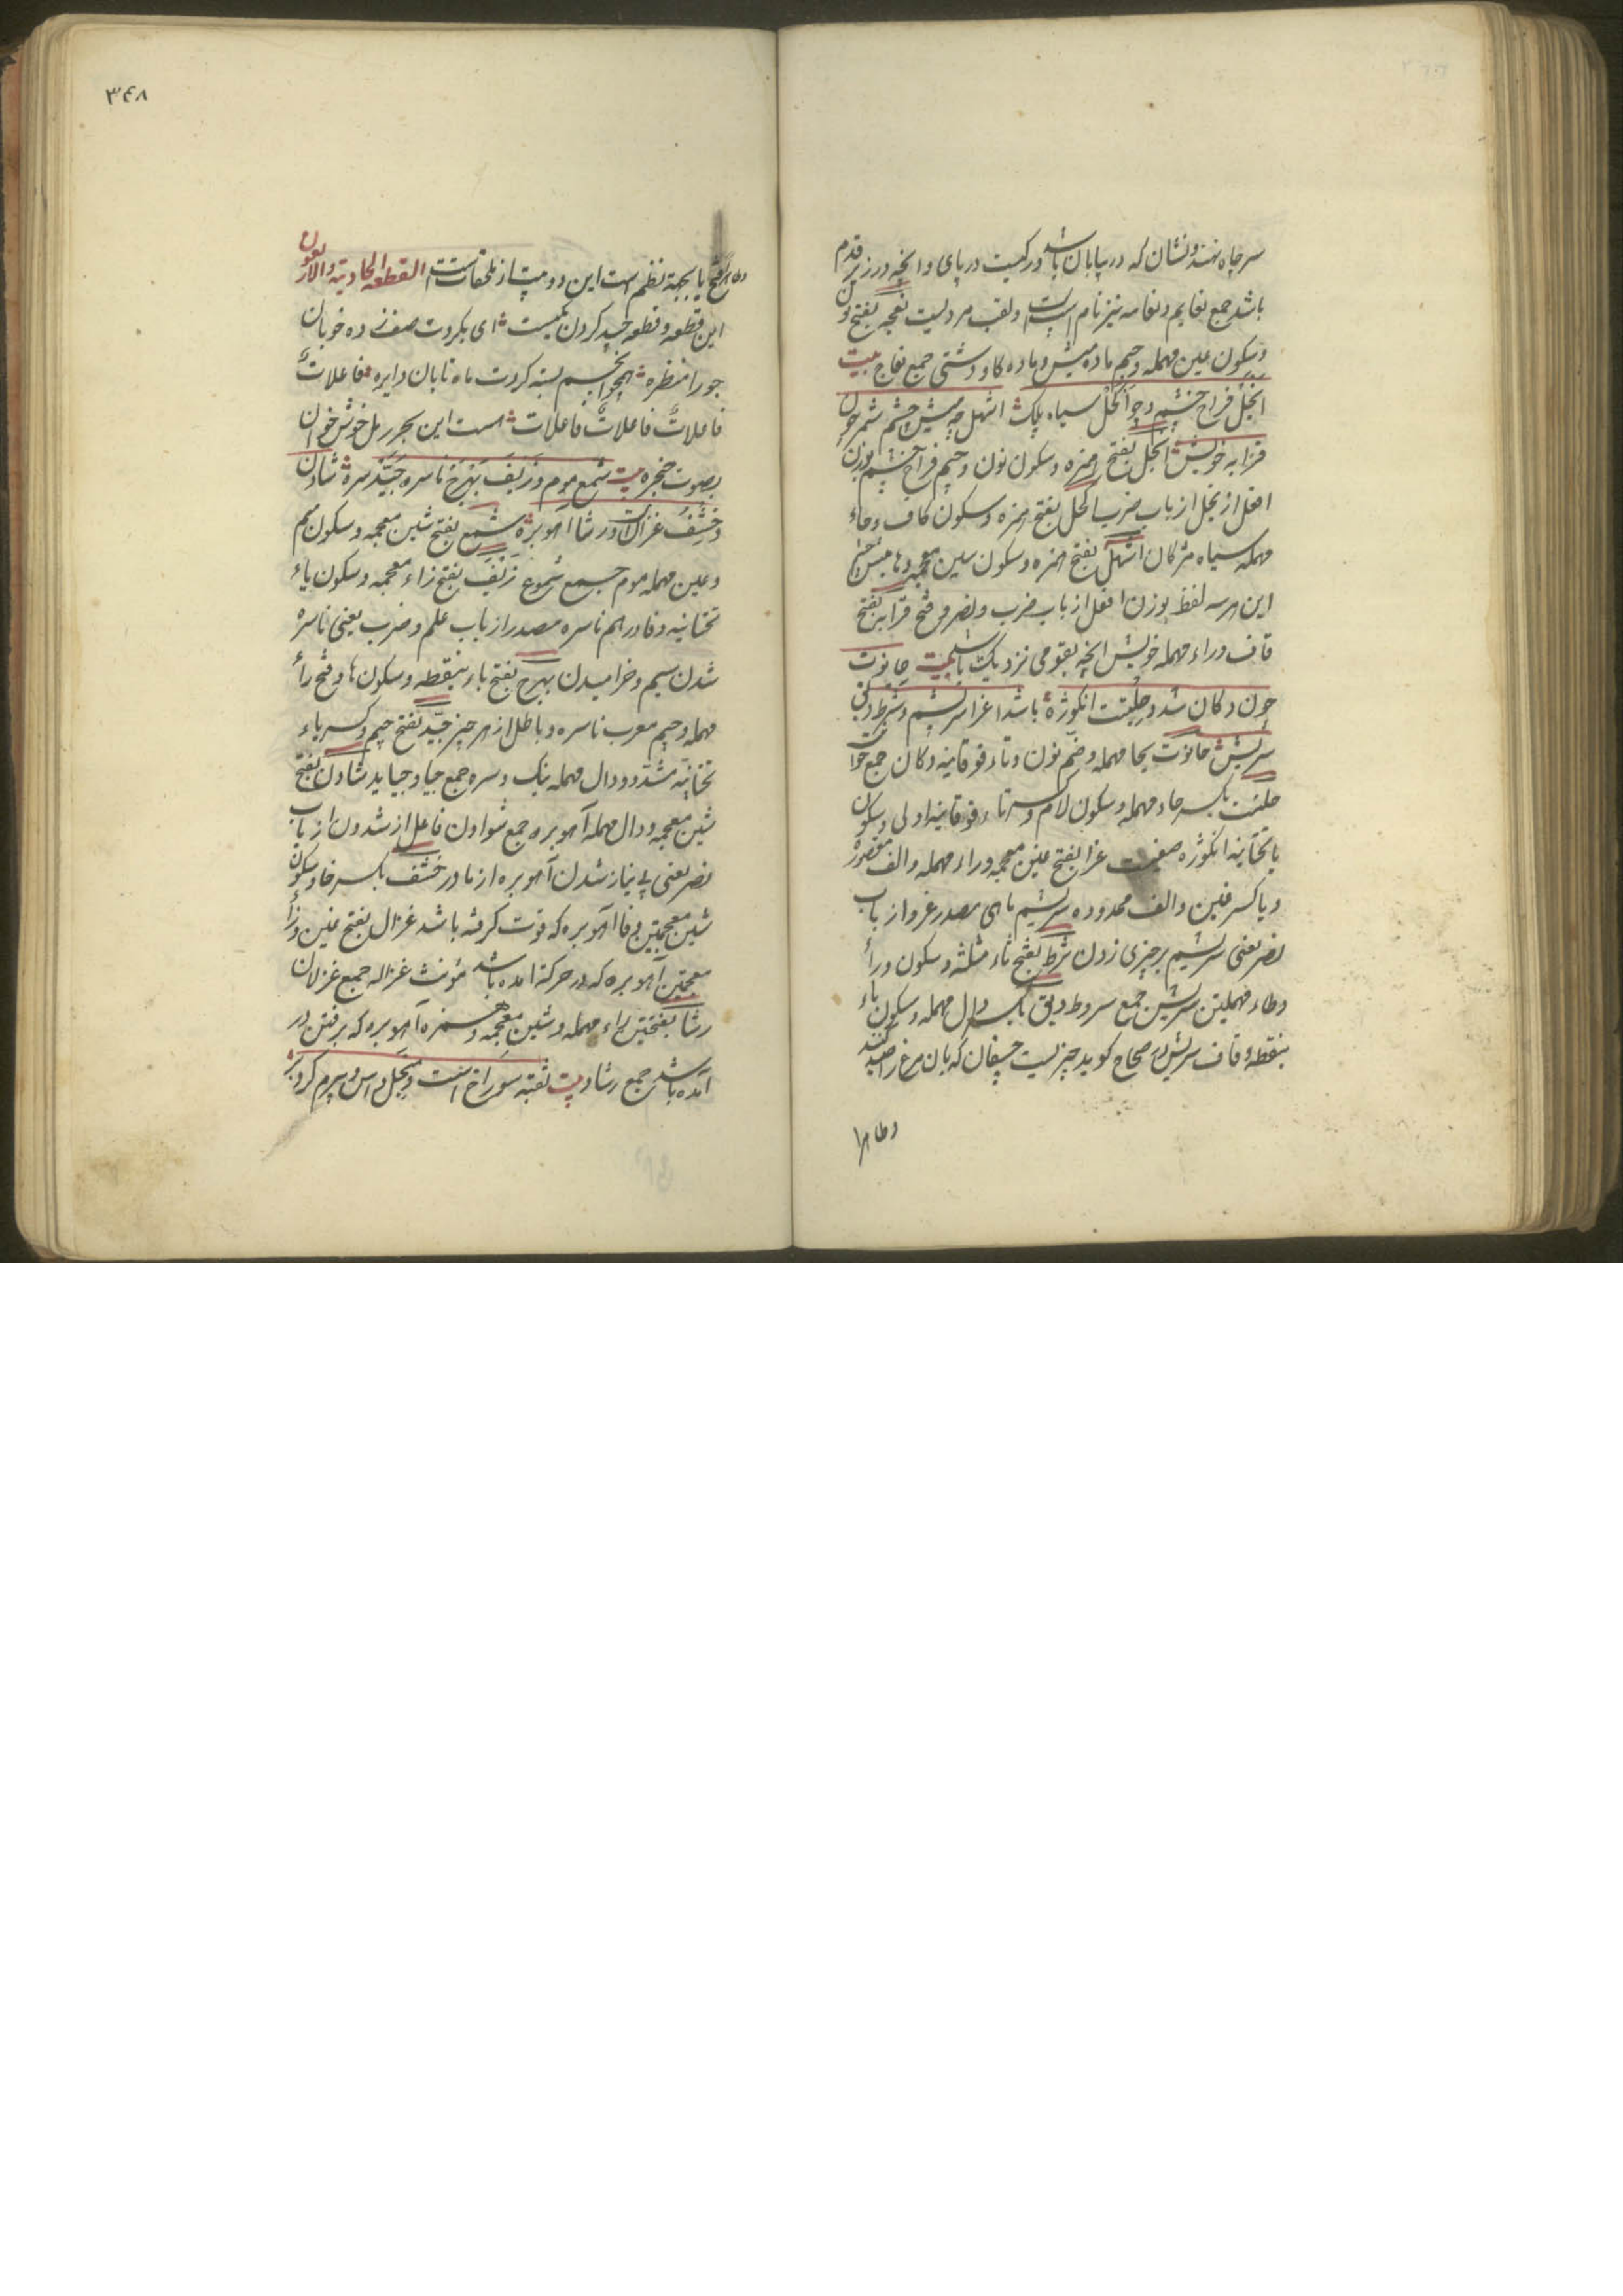 سر چاه نهند و نشان که در بیابان باشد و رگیست در پای و آنچه در زیر قدم
باشد جمع نعایم و نعامه نیز نام اسپ است و لقب مردیست نعجه بفتح نون
و سکون عین مهمله و جیم ماده میش و ماده گاو دشتی جمع نعاج بیت
انجل فراخ چشم و اکحل سیاه پلک اشهل چه میش چشم شمر چون
قرابه خویش انجل بفتح همزه و سکون نون و جیم فراخ چشم بوزن
افعل از نجل از باب ضرب اکحل بفتح همزه و سکون کاف و حاء
مهمله سیاه مژگان اشهل بفتح همزه و سکون شین معجمه و ها میش چشم
این هر سه لفظ بوزن افعل از باب ضرب و نصر و فتح قرابه بفتح
قاف و راء مهمله خویش آنچه بقومی نزدیک باشد بیت حانوت
چون دکان شد و حلتیت انگوژه باشد غرا سریشم و ثرط و دبق
سریش حانوت بحا مهمله و ضم نون و تاء فوقانیه دکان جمع حوانیت
حلتیت بکسر حاء مهمله و سکون لام و کسر تاء فوقانیه اولی و سکون
یا تحتانیه انگوژه غرا بفتح غین معجمه و راء مهمله و الف مقصوره
و یا کسر غین و الف ممدوده سریشم ماهی مصدر غرو از باب
نصر یعنی سریشم بر چیزی زدن ثرط بفتح ثاء مثلثه و سکون راء
و طاء مهملتین سریش جمع ثروط دبق بکسر دال مهمله و سکون باء
بنقطه و قاف سریش در صحاح گوید چیزیست چسفان که بان مرغ را صید کنند
و ظاهرا
۳۴۸
و ظاهرا فتح یا بجهة نظم است این دو بیت از ملحقاتست القطعه الحادیة و الاربعون
این قطعه و قطعه جید کردن بکیست ای بگرد صف زده خوبان
حورا منظره همچو انجم بسته گردت ماه تابان دایره فاعلاتٌ
فاعلاتٌ فاعلاتٌ فاعلات هست این بحر رمل خوش خوان
بصوت حنجره بیت شمع موم و زیف بهرج ناسره جید سره شادن
و خشف غزالست و رشا آهو بره شمع بفتح شین معجمه و سکون میم
و عین مهمله موم جمع شموع زیف بفتح زاء معجمه و سکون یاء
تحتانیه و فا درهم ناسره مصدر از باب علم و ضرب یعنی ناسره
شدن سیم و خرامیدن بهرج بفتح باء بنقطه و سکون ها و فتح راء
مهمله و جیم معرب ناسره و باطل از هر چیز جیّد بفتح جیم و کسر یاء
تحتانیه مشدد و دال مهمله نیک و سره جمع جیاد و جیاید شادن بفتح
شین معجمه و دال مهمله آهو بره جمع شوادن فاعل از شدون از باب
نصر یعنی بی نیاز شدن آهو بره از مادر خشف بکسر خا و سکون
شین معجمتین و فا آهو بره که قوت گرفته باشد غزال بفتح غین و زاء
معجمتین آهو بره که در حرکة آمده باشد مؤنث غزاله جمع غزلان
رشا بفتحتین راء مهمله و شین معجمه و همزه آهو بره که برفتن در
آمده باشد جمع رشاء بیت ثقبه سوراخ است و منجل داس